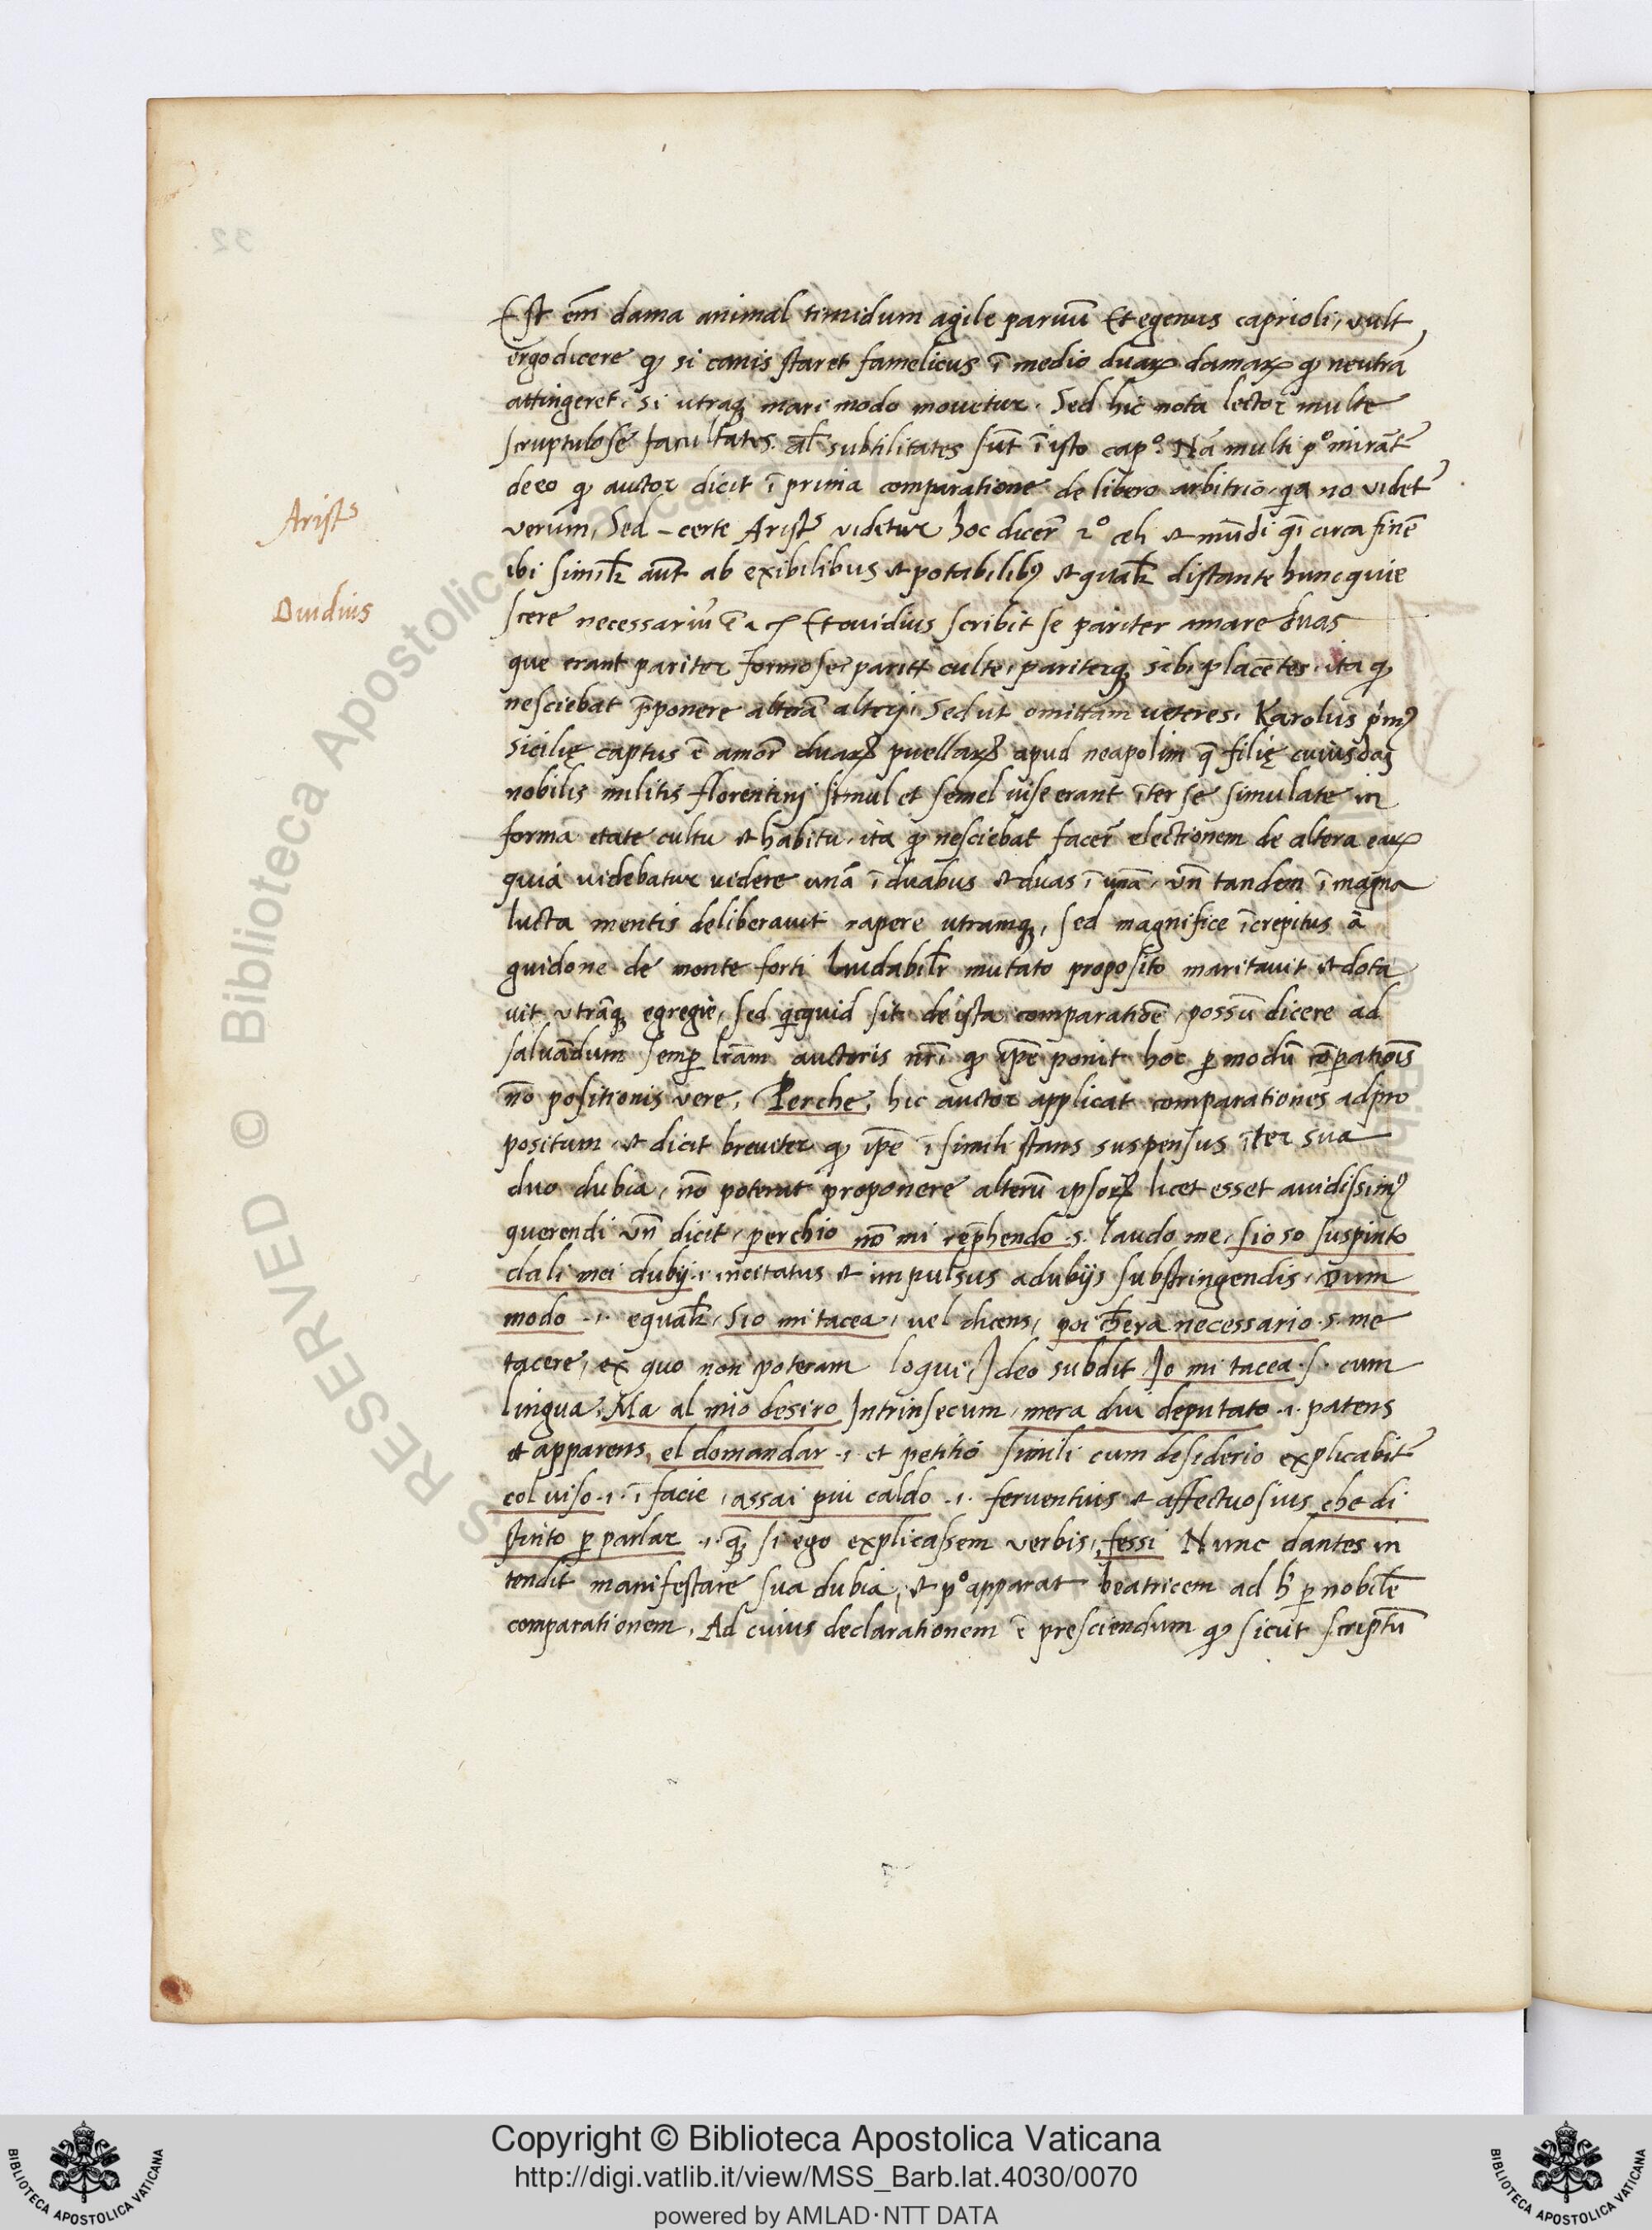 Est em̄ dama animal timidum agile paruū Et egenus caprioli, vult
ergo dicere qͩ si canis staret famelicus ī medio duaꝝ damaꝝ qͩ neutrā
attingeret, si utraqꝫ mari modo mouetur. Sed hic nota lector multe
scruptulose facultates. al̄ subtilitates sūt ī isto cap°. Nā multi p° mirāt᷑
de eo qͩ auctor dicit ī prima comparatione de libero arbitrio, qa no videt᷑
verum, Sed - certe Arist᷑ videtur hoc dicer̄ 2° celi et mūdi q̄i circa finē
Arist᷑
ibi simil̄r aūt ab exibilibus et potabilibꝯ et equal̄r distante hunc quie
Ouidius
scere necessariū ē Et ouidius scribit se pariter amare duas
que erant pariter formose, parit̄ culte, pariterqꝫ sibi placētes, ita qͩ
nesciebat p̄ponere alterā alterj, Sed ut omittam veteres, Karolus pimꝯ
Sicilię captus ē amor̄ duaꝝ puellaꝝ apud neapolim q̄ filię cuiusdaꝫ
nobilis militis florentinj simul et semel uise erant īter se simulate in
forma etate cultu et habitu, ita qͩ nesciebat facer̄ electionem de altera eaꝝ
quia videbatur videre unā ī duabus et duas ī unā, vn̄ tandem ī magna
lucta mentis deliberauit rapere utramqꝫ, sed magnifice īcrepitus a
guidone de monte forti laudabil̄r mutato proposito maritauit et dota
uit vtrāqꝫ egregie, sed qicquid sit de ista comparatiōe, possū dicere ad
saluandum semp̱ lr̄am auctoris nr̄i qͩ ip̄e ponit hoc ꝑ modū cōꝑatiōis
nō positionis vere, Perche, hic auctor applicat comparationes ad pro
positum, et dicit breuiter qͩ ip̄e ī simili stans suspensus īter sua
duo dubia, nō poterat proponere alterū ipsoꝝ licet esset auidissimꝯ
querendi vn̄ dicit, perchio nō mi rep̄hendo .s. laudo me, sio so suspinto
dali mei dubij .i. incitatus et impulsus a dubijs substringendis, Dum
modo .i. equal̄r, Sio mi tacea, vel dicens, poi ch̄era necessario .s. me
tacere, ex quo non poteram loqui, Ideo subdit Io mi tacea .s. cum
lingua, Ma al mio desiro Intrinsecum, mera dui deputato .i. patens
et apparens, el domandar .i. et petitio simili cum desiderio explicabit᷑
col uiso .i. ī facie, assai piu caldo .i. feruentius et affectuosius che di
stinto ꝑ parlar .i. q̄ꝫ si ego explicassem verbis, fessi Nunc dantes in
tendit manifestare sua dubia, et p° apparat beatricem ad h̄ ꝑ nobilē
comparationem, Ad cuius declarationem ē presciendum qͩ sicut scriptū
Copyright © Biblioteca Apostolica Vaticana
http://digi.vatlib.it/view/MSS_Barb.lat.4030/0070
powered by AMLAD·NTT DATA